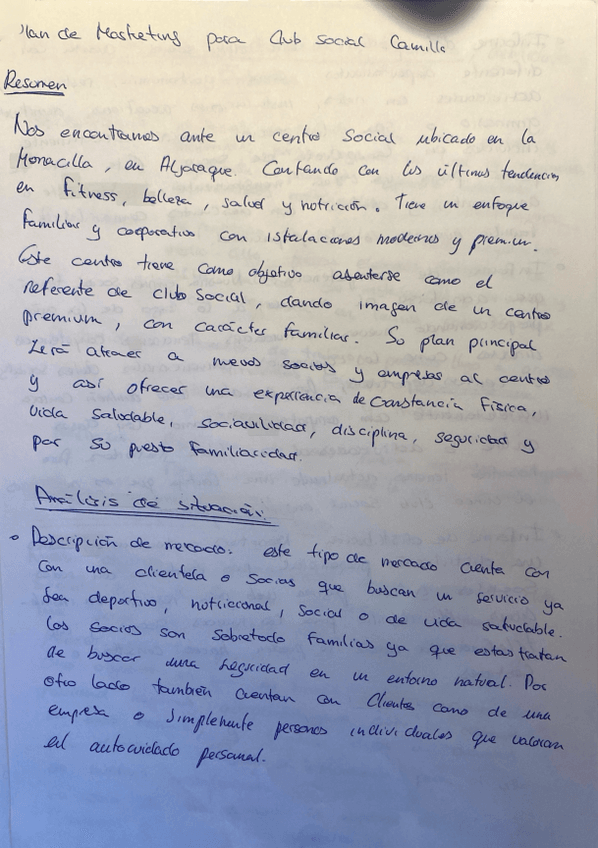 Plan de Marketing para Club Social Camilla
Resumen
Nos encontramos ante un centro Social ubicado en la
Monacilla, en Aljaraque. Contando con las últimas tendencias
en fitness, belleza, salud y nutrición. Tiene un enfoque
familiar y corporativo con istalaciones modernas y premiun.
Este centro tiene como objetivo asenterse como el
referente de club social, dando imagen de un centro
premium, con carácter familiar. Su plan principal
será atraer a nuevos socios y empresas al centro
y así ofrecer una experiencia de Constancia Física,
vida saludable, sociavilidad, disciplina, seguridad y
por su puesto familiaridad.
Análisis de situación
Descripción de mercado: este tipo de mercado cuenta con
con una clientela o socios que buscan un servicio ya
sea deportivo, nutriccional, social o de vida saludable.
Los socios son sobretodo familias ya que estas tratan
de buscar una seguridad en un entorno natural. Por
otro lado también cuentan con clientes como de una
empresa o simplemente personas individuales que valoran
el autocuidado personal.